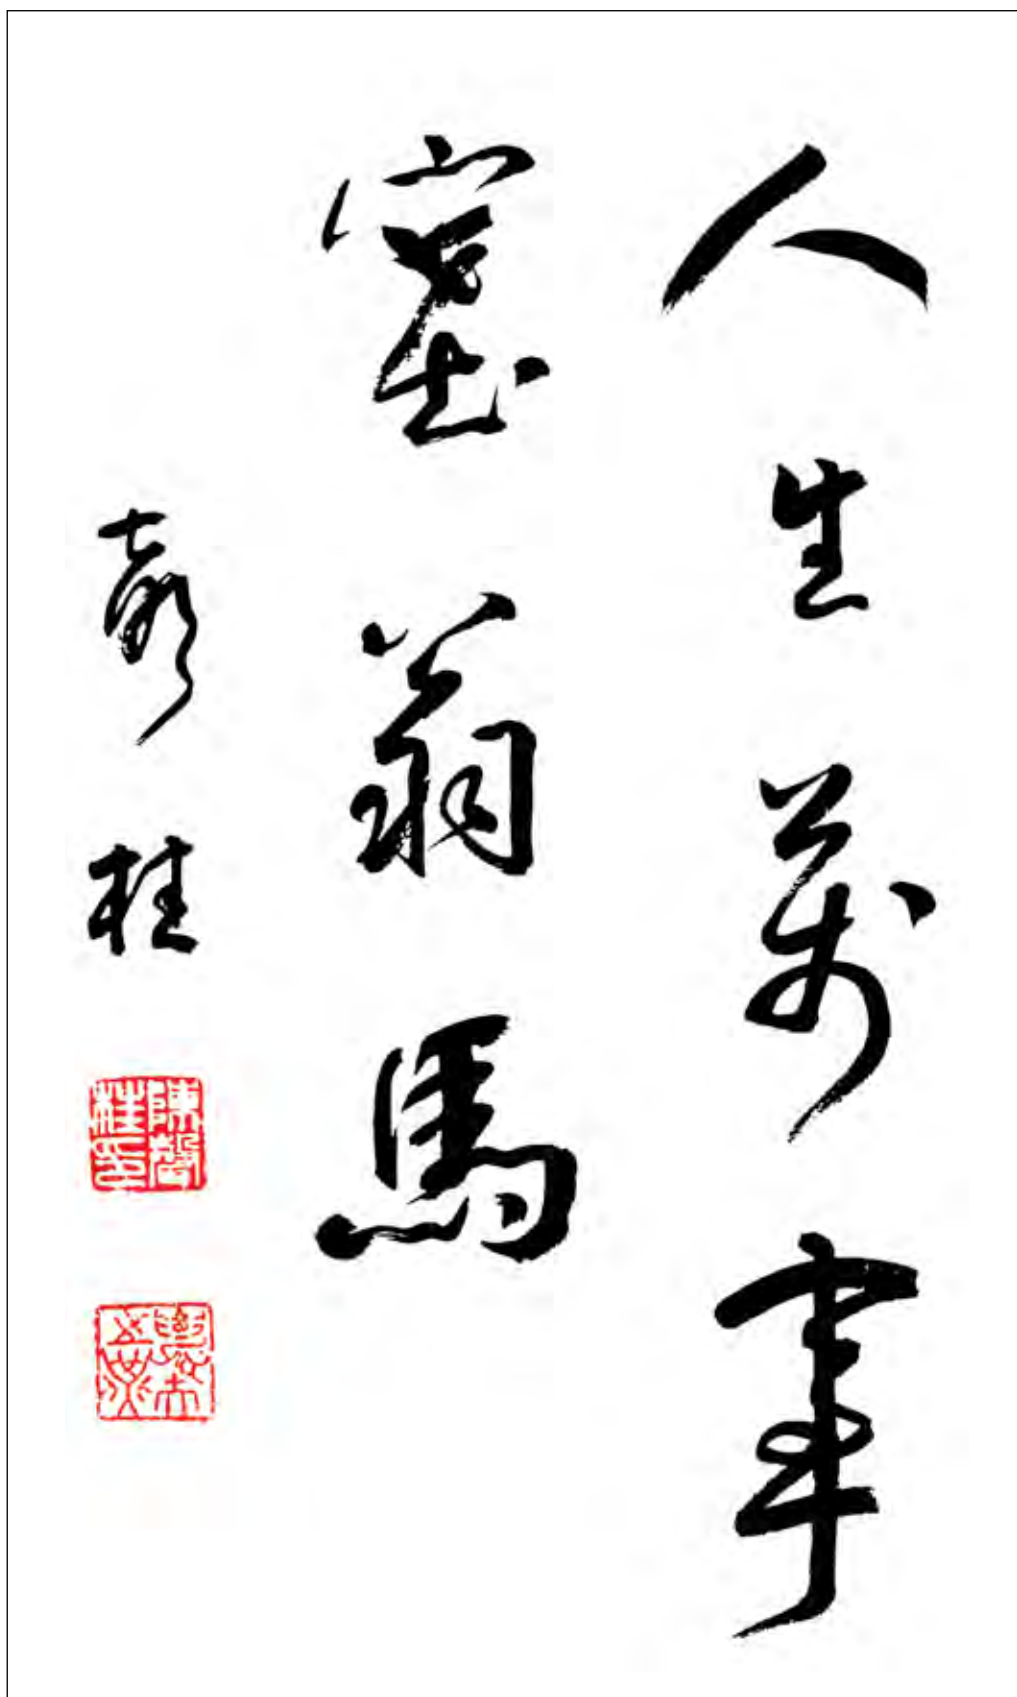 人生萬事
塞翁馬
桂
陳
桂印